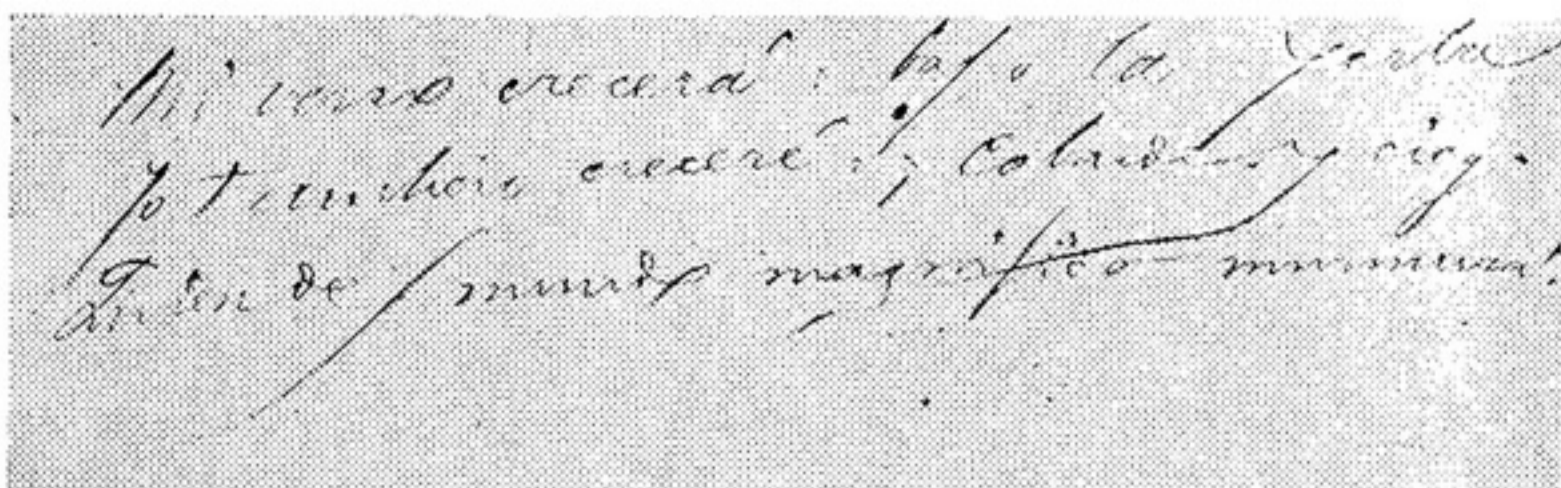 Mi verso crecerá: bajo la yerba
Yo tambien creceré: ¡Cobarde y ciego
Quien del mundo magnífico murmura!